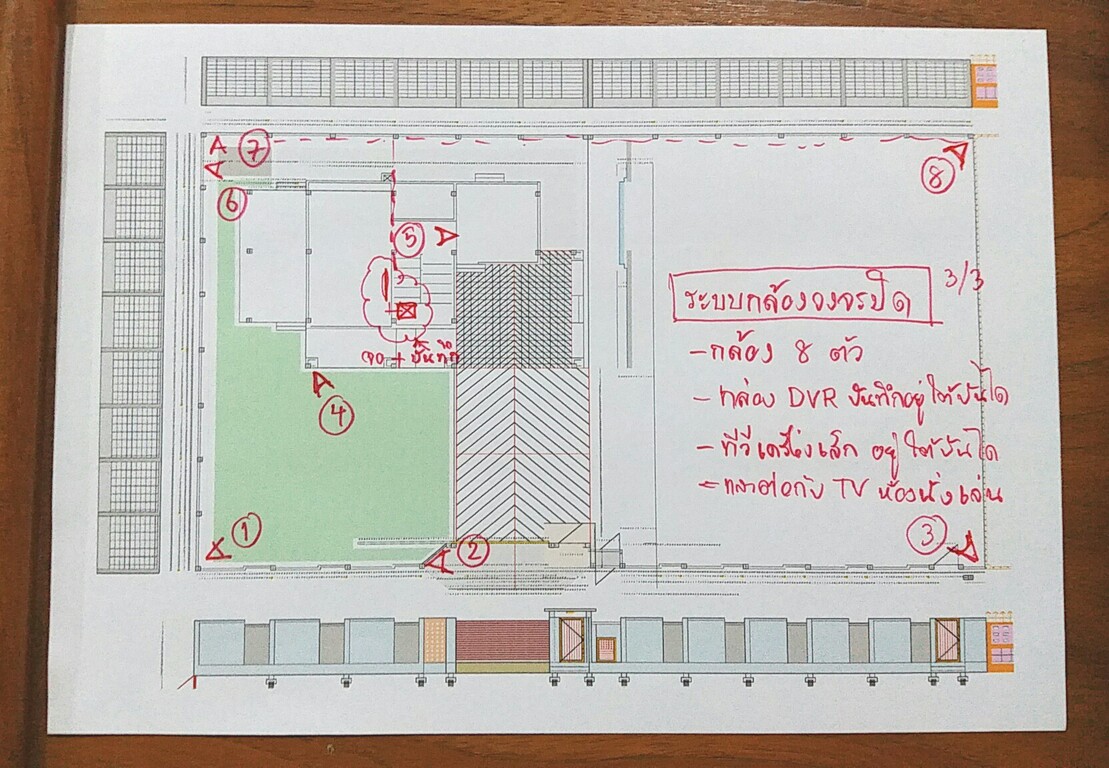 7
8
6
5
3/3
ระบบกล้องวงจรปิด
- กล้อง 8 ตัว
จอ + บันทึก
- กล่อง DVR บันทึกอยู่ใต้บันได
4
- ทีวีเครื่องเล็ก อยู่ใต้บันได
ต่อกับ TV ห้องนั่งเล่น
1
2
3